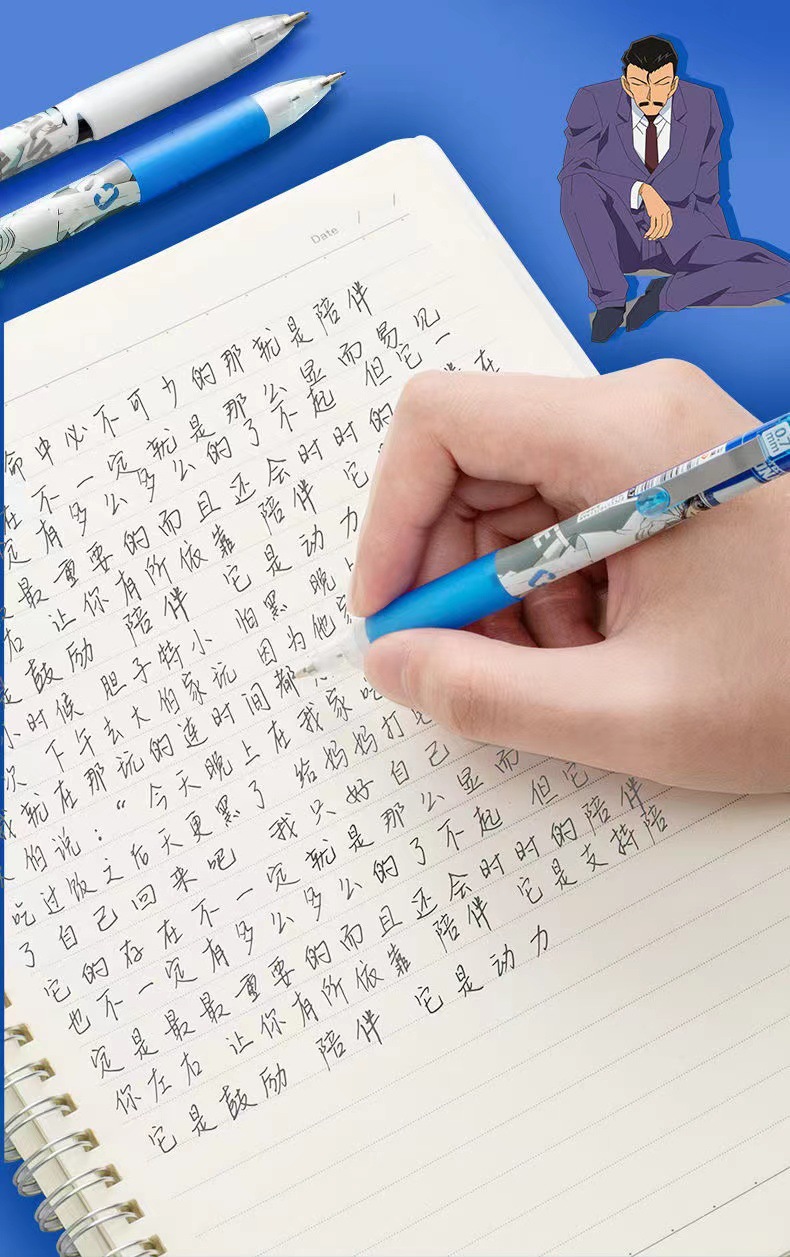 Date / /
命中必不可少的那就是陪伴
在不一定就是那么显而易见
定有多么多么的了不起 但它一
最重要的而且还会时时的
右 让你有所依靠 陪伴 它
是鼓励 陪伴 它是动力
小时候 胆子特小 怕黑 晚上
次 下午去大伯家玩 因为他家
我就在那玩的连时间都
大伯说：“今天晚上在我家吃
吃过饭之后天更黑了 给妈妈打电
了自己回来吧 我只好自己
它的存在不一定就是那么显而
也不一定有多么多么的了不起 但它
定是最最重要的而且还会时时的陪伴
你左右 让你有所依靠 陪伴 它是支持陪
它是鼓励 陪伴 它是动力
0.7
mm